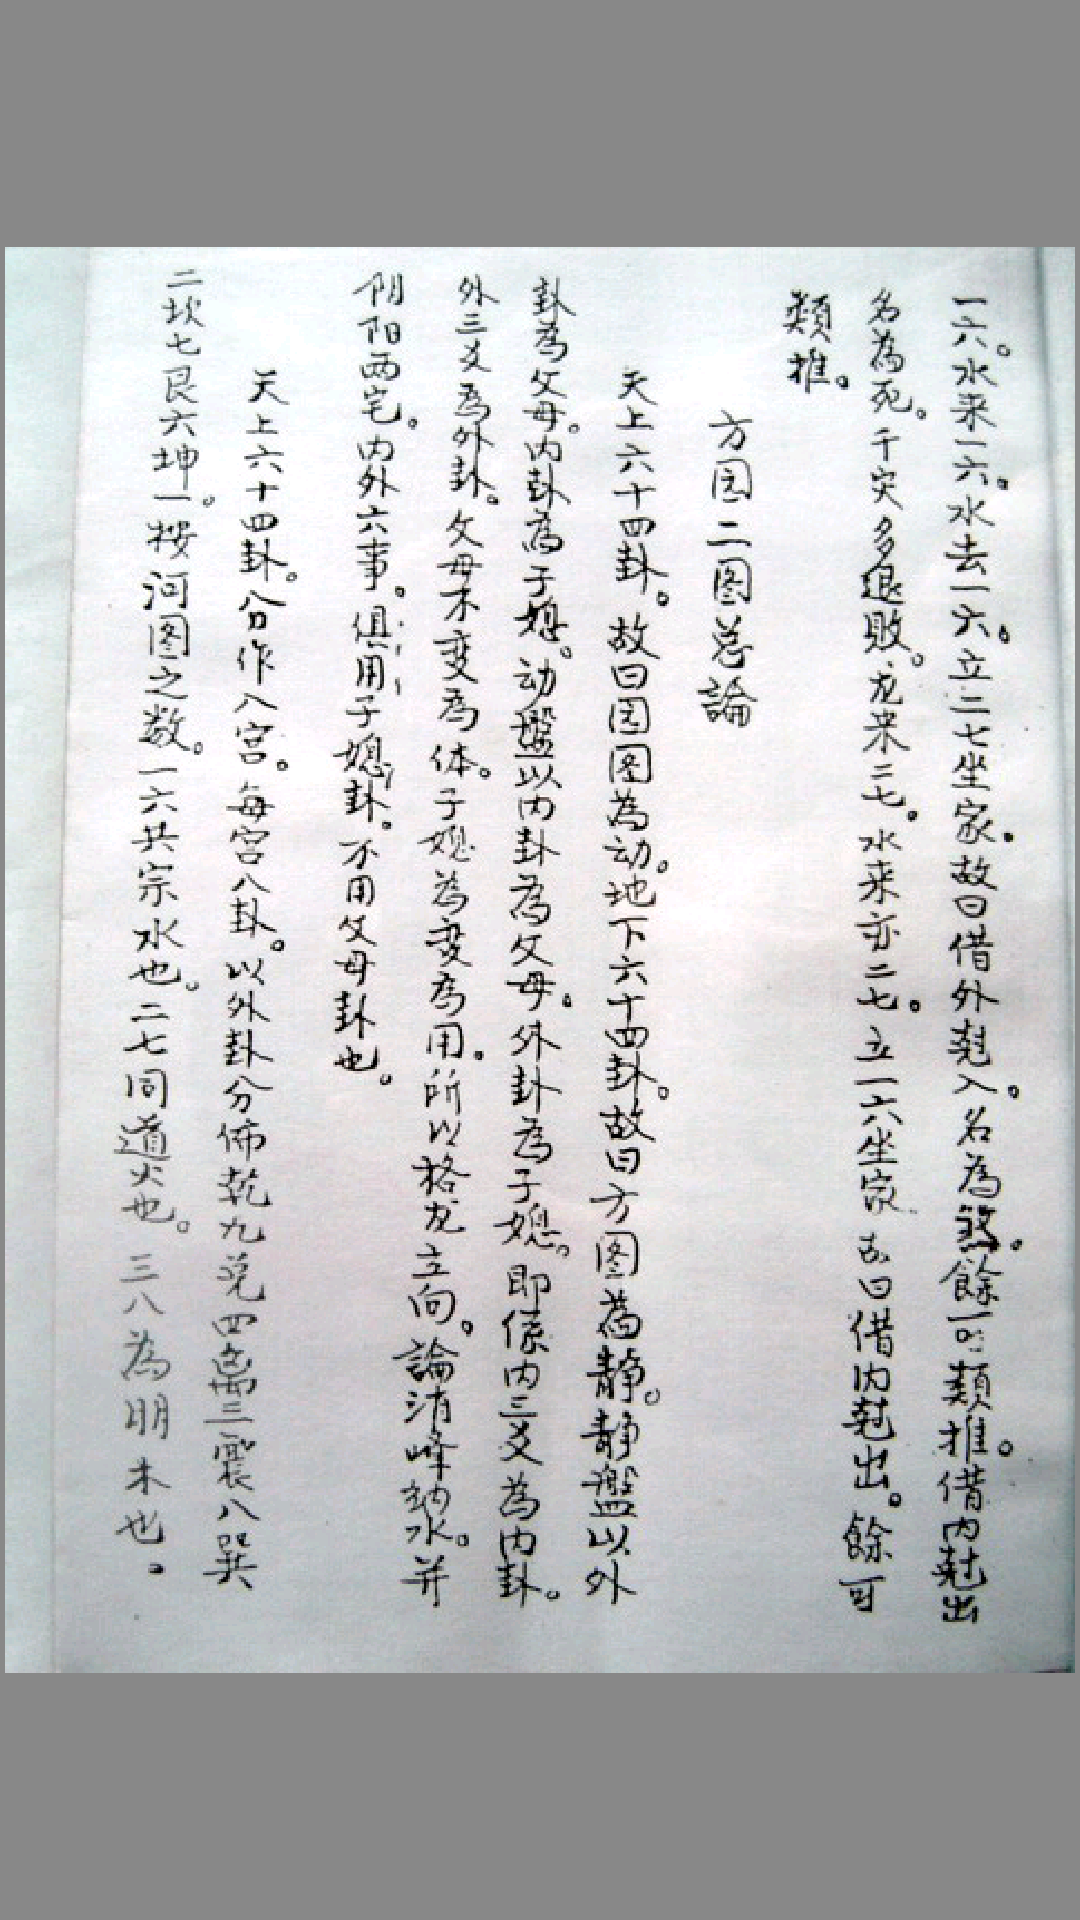 一六。水来一六。水去一六。立二七坐家。故曰借外尅入。名為煞。餘可類推。借内尅出
名為死。千灾多退敗。龙来二七。水来亦二七。立一六坐家 故曰借内尅出。餘可
類推。
方园二图总論
天上六十四卦。故曰园图為动。地下六十四卦。故曰方图為静。静盤以外
卦為父母。内卦為子媳。动盤以内卦為父母。外卦為子媳。即係内三爻為内卦。
外三爻為外卦。父母不变為体。子媳為变為用。所以格龙立向。論消峰納水。并
阴阳两宅。内外六事。俱用子媳卦。不用父母卦也。
天上六十四卦。分作八宫。每宫八卦。以外卦分佈乾九兑四离三震八巽
二坎七艮六坤一。按河图之数。一六共宗水也。二七同道火也。三八為朋木也。